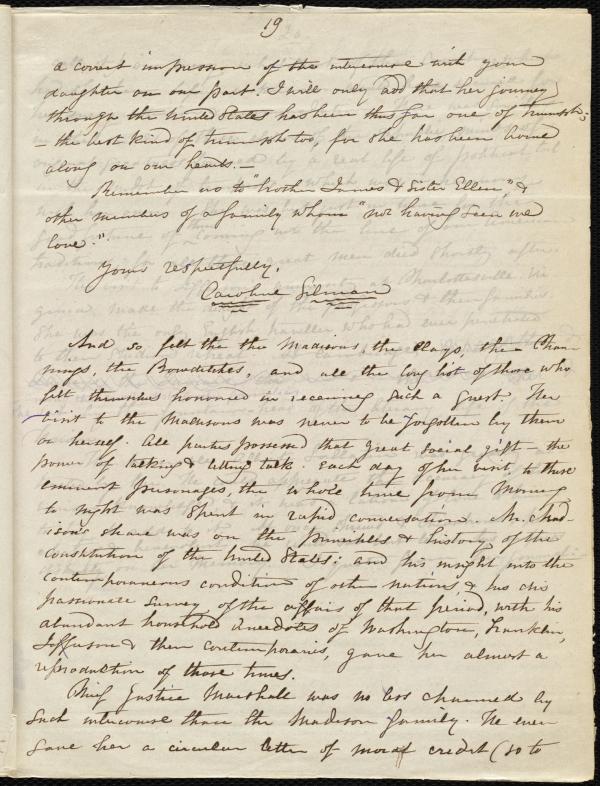 19
a correct impression of the intercourse with your
daughter on our part. I will only add that her journey
through the United States has been thus far one of triumph;
– the best kind of triumph too, for she has been borne
along on our hearts. —
Remember us to "brother James & Sister Ellen" &
other members of a family whom "not having seen we
love."
Yours respectfully,
Caroline Gilman
And so felt the the Madisons, the Clays, the Chan-
nings, the Bowditches, and all the long list of those who
felt themselves honoured in receiving such a guest. Her
visit to the Madisons was never to be forgotten by them
or herself. All parties possessed that great social gift – the
power of talking & letting talk. Each day of her visit, to these
eminent personages, the whole time from Morning
to night was spent in rapid conversation. Mr. Mad-
ison's share was on the principles & history of the
Constitution of the United States: and his insight into the
contemporaneous condition of other nations, & his dis
passionate survey of the affairs of that period, with his
abundant household anecdotes of Washington, Franklin,
Jefferson & their contemporaries, gave her almost a
reproduction of those times.
Chief Justice Marshall was no less charmed by
such intercourse than the Madison family. He even
gave her a circular letter of moral credit (so to